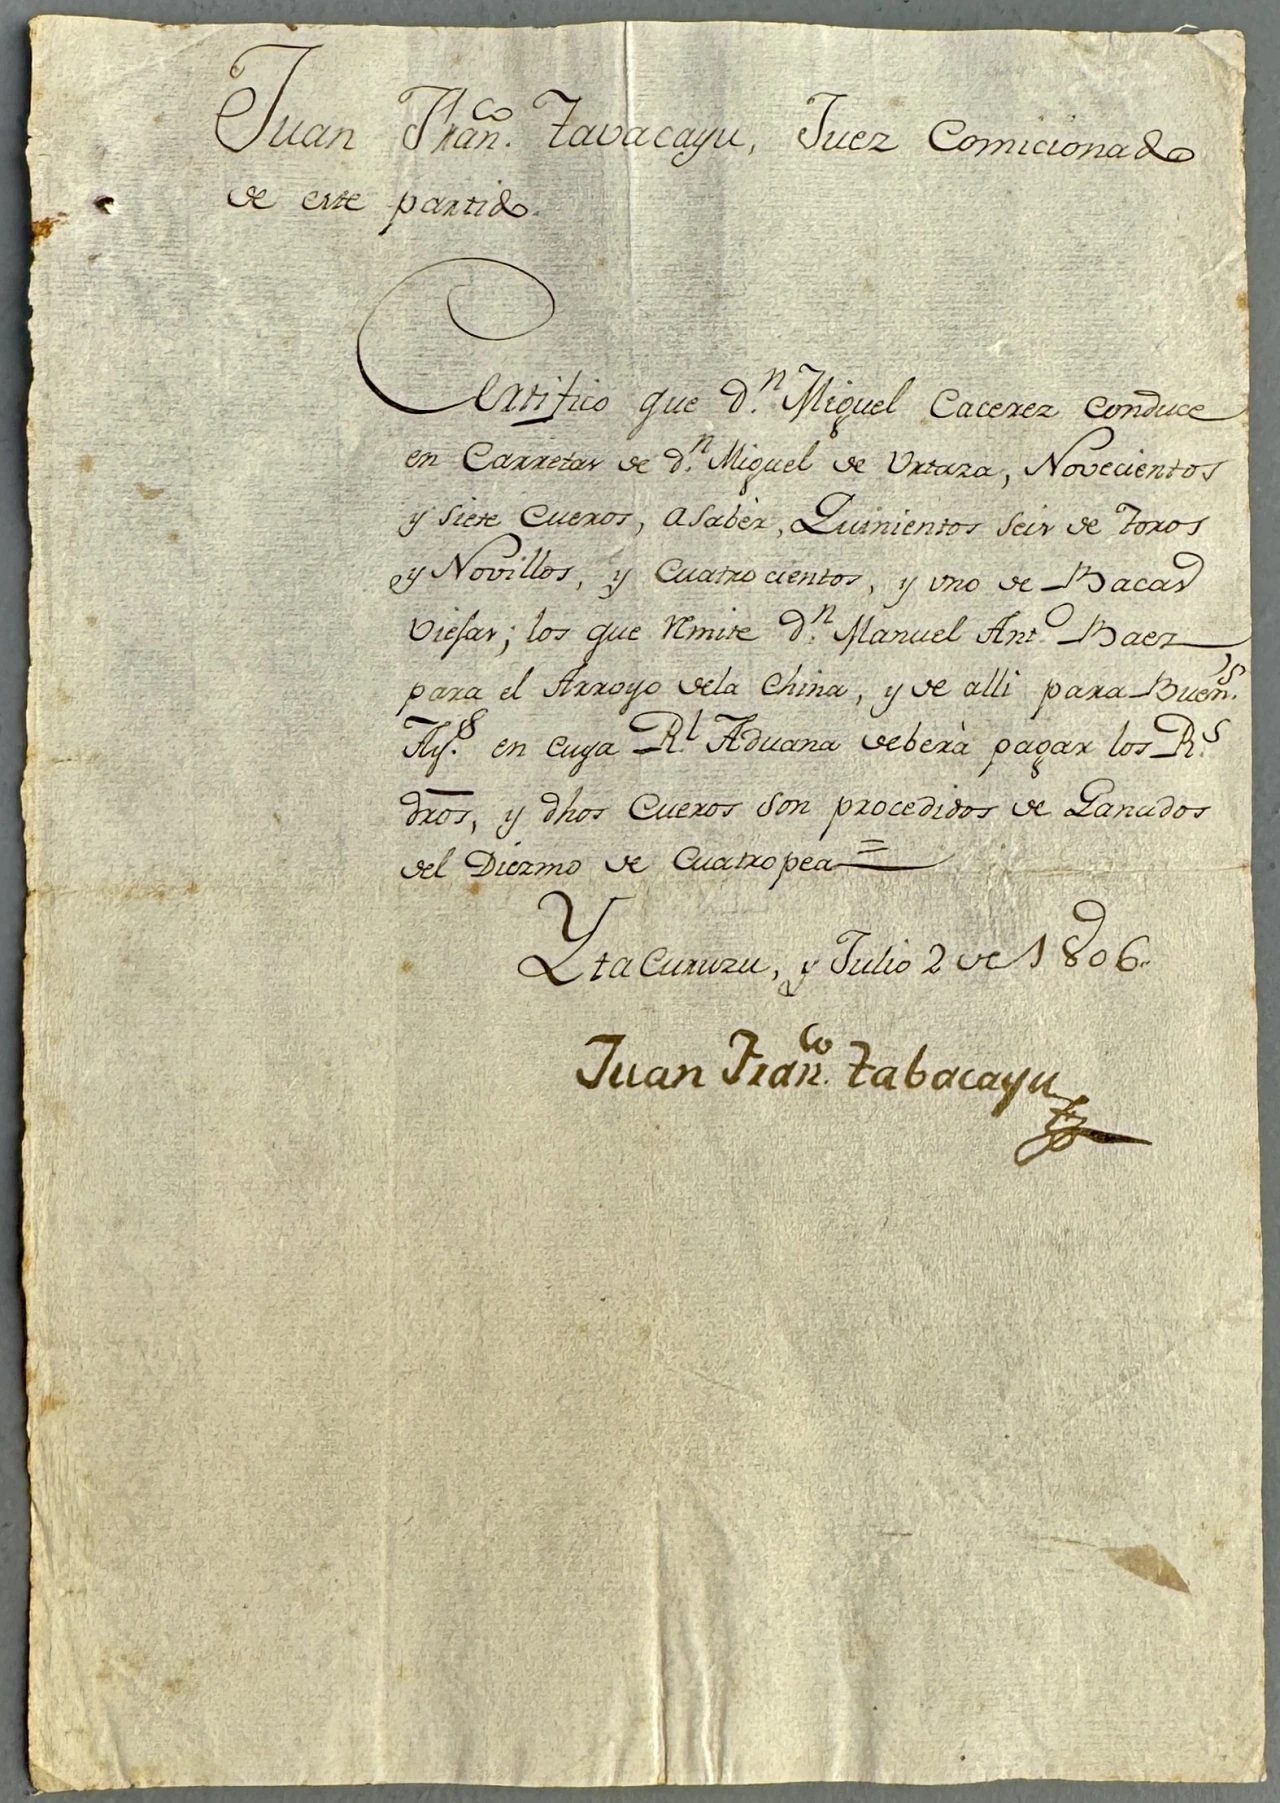 Juan Fran.co Tavacayu, Juez Comicionado
de este partido.
Certifico que d.n Miguel Cacerez conduce
en Carretas de d.n Miguel de Urtaza, Novecientos
y siete Cueros, asabèr, Quinientos seis de Toros
y Novillos, y Cuatrocientos, y uno de Bacas
viejas; los que Remite d.n Manuel Ant.o Baez
para el Arroyo dela China, y de alli para Buen.s
Ay.s en cuya R.l Aduana deberà pagar los R.s
dros, y dhos Cueros son procedidos de Ganados
del Diezmo de Cuatropea =
Yta Curuzu, y Julio 2 de 1806.
Juan Fran.co Tabacayu